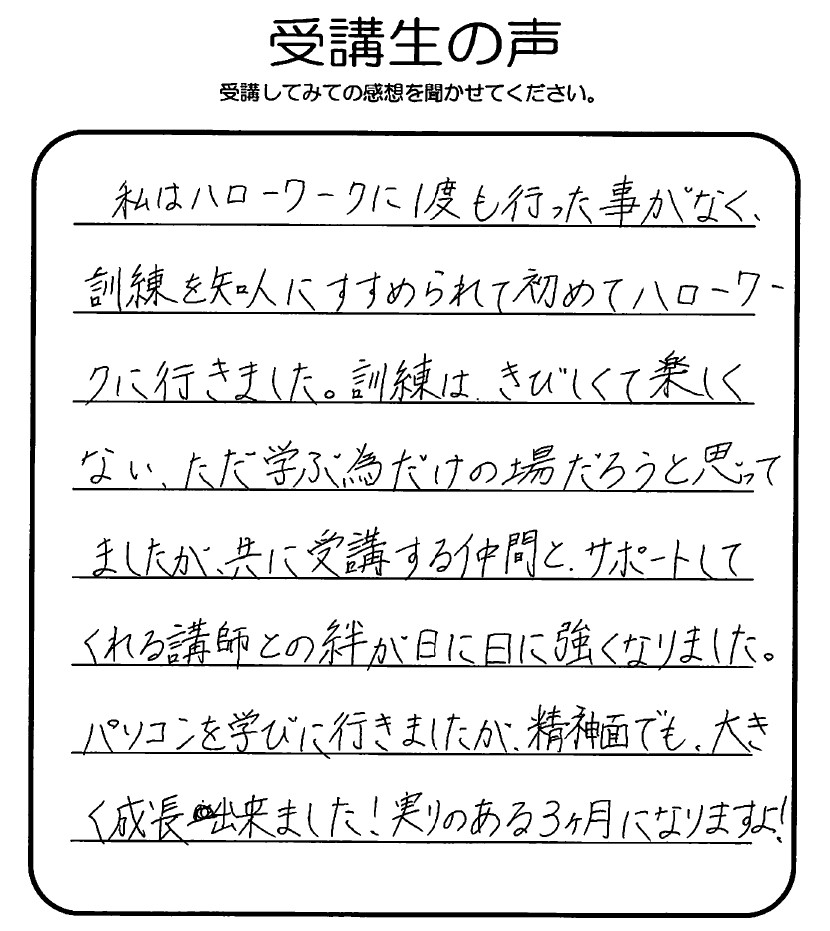 受講生の声
受講してみての感想を聞かせてください。
私はハローワークに1度も行った事がなく、
訓練を知人にすすめられて初めてハローワー
クに行きました。訓練は、きびしくて楽しく
ない、ただ学ぶ為だけの場だろうと思って
ましたが、共に受講する仲間と、サポートして
くれる講師との絆が日に日に強くなりました。
パソコンを学びに行きましたが、精神面でも、大き
く成長出来ました！実りのある3ヶ月になりますよ！